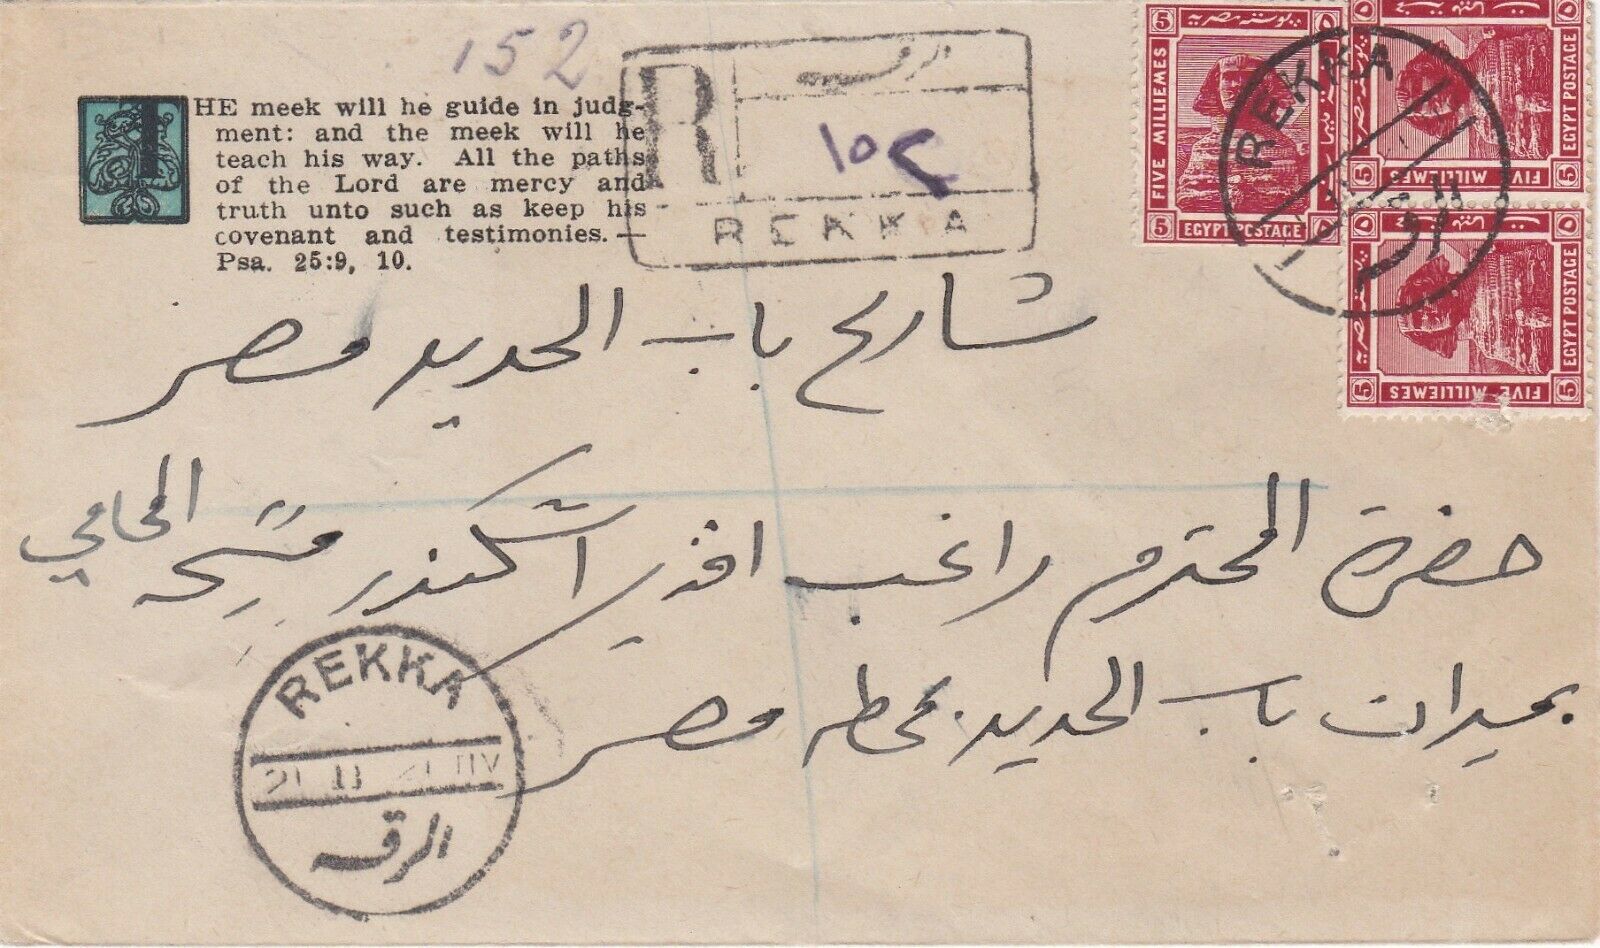 152
THE meek will he guide in judg-
ment: and the meek will he
teach his way. All the paths
of the Lord are mercy and
truth unto such as keep his
covenant and testimonies.—
Psa. 25:9, 10.
R
الرقه
١٥٢
REKKA
بوسته مصرية
FIVE MILLIEMES
5
5
EGYPT POSTAGE
EGYPT POSTAGE
FIVE MILLIEMES
5
5
EGYPT POSTAGE
FIVE MILLIEMES
5
5
REKKA
الرقه
شارع باب الحديد مصر
حضرة المحترم راغب افندى اسكندر مسيحه المحامي
بميدان باب الحديد بمحطه مصر
REKKA
21 II 21
الرقه